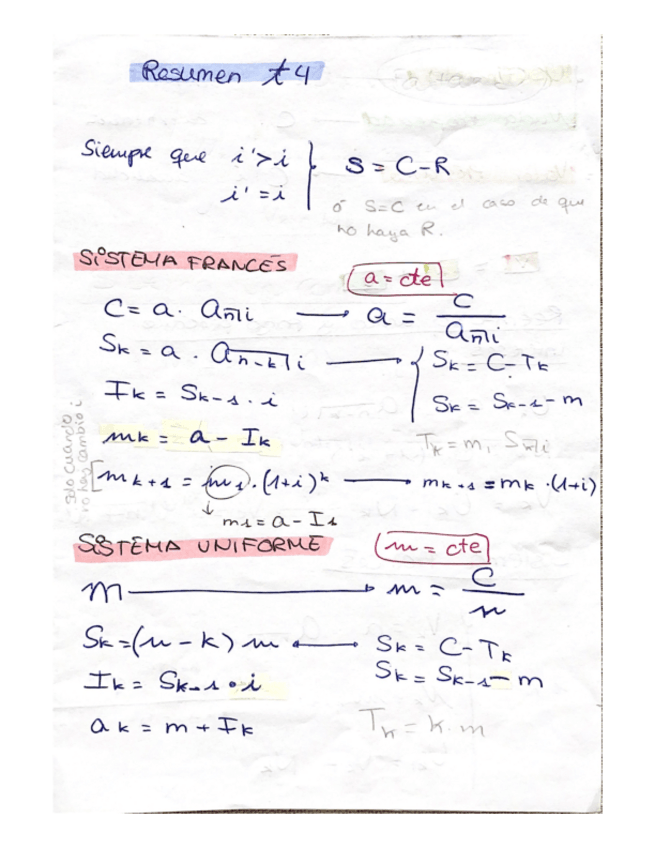 Resumen t4
Siempre que i'>i } S = C-R
i' = i
ó S=C en el caso de que
no haya R.
SISTEMA FRANCÉS
a = cte
C = a · a n̅|i → a = C / a n̅|i
Sk = a · a n-k|i → { Sk = C - Tk
Ik = Sk-1 · i Sk = Sk-1 - m
mk = a - Ik Tk = m1 S k̅|i
Solo cuando no hay cambio i
[ mk+1 = m1 · (1+i)^k → mk+1 = mk · (1+i)
↓ m1 = a - I1
SISTEMA UNIFORME m = cte
m → m = C / n
Sk = (n - k) m ← Sk = C - Tk
Sk = Sk-1 - m
Ik = Sk-1 · i
ak = m + Ik Tk = k · m